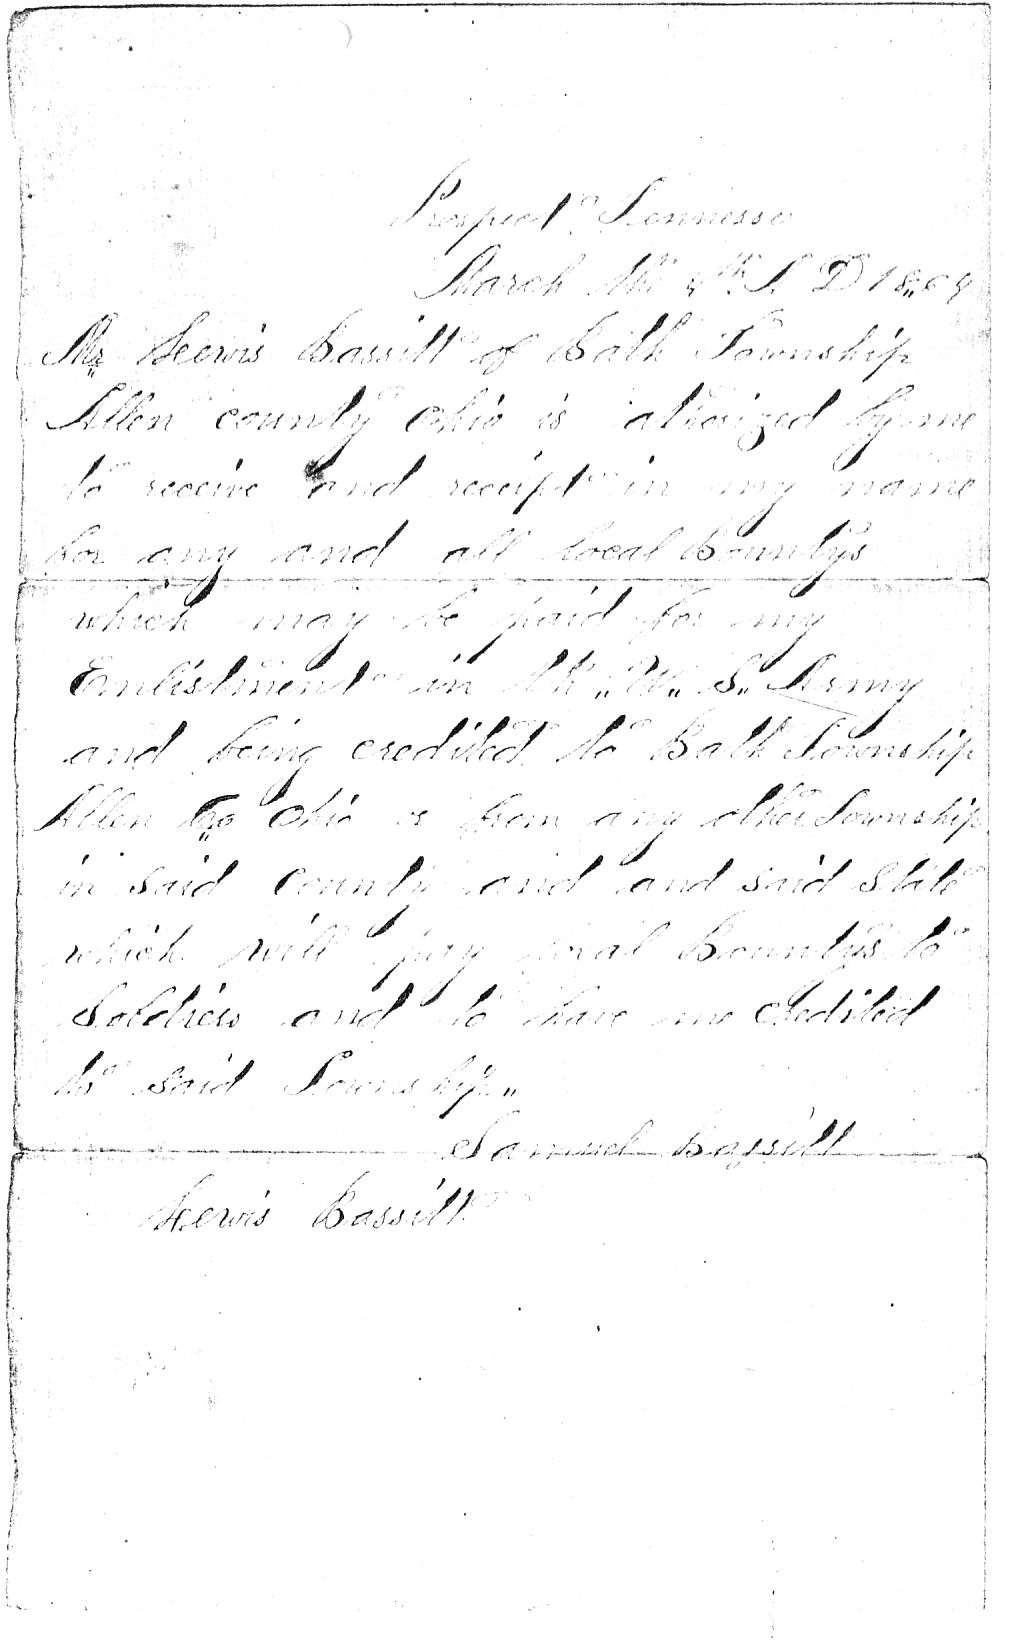 Prospect Tennessee
March the 4th A D 1864
Mr Lewis Bassitt of Bath Township
Allen county Ohio is athorized by me
to receive and receipt in my name
for any and all local Bountys
which may be paid for my
Enlistment in the U. S. Army
and being credited to Bath Township
Allen Co Ohio or from any other Township
in said County and and said State
which will pay local Bountys to
Soldiers and to have me credited
to said Township
Samuel Bassitt
Lewis Bassitt